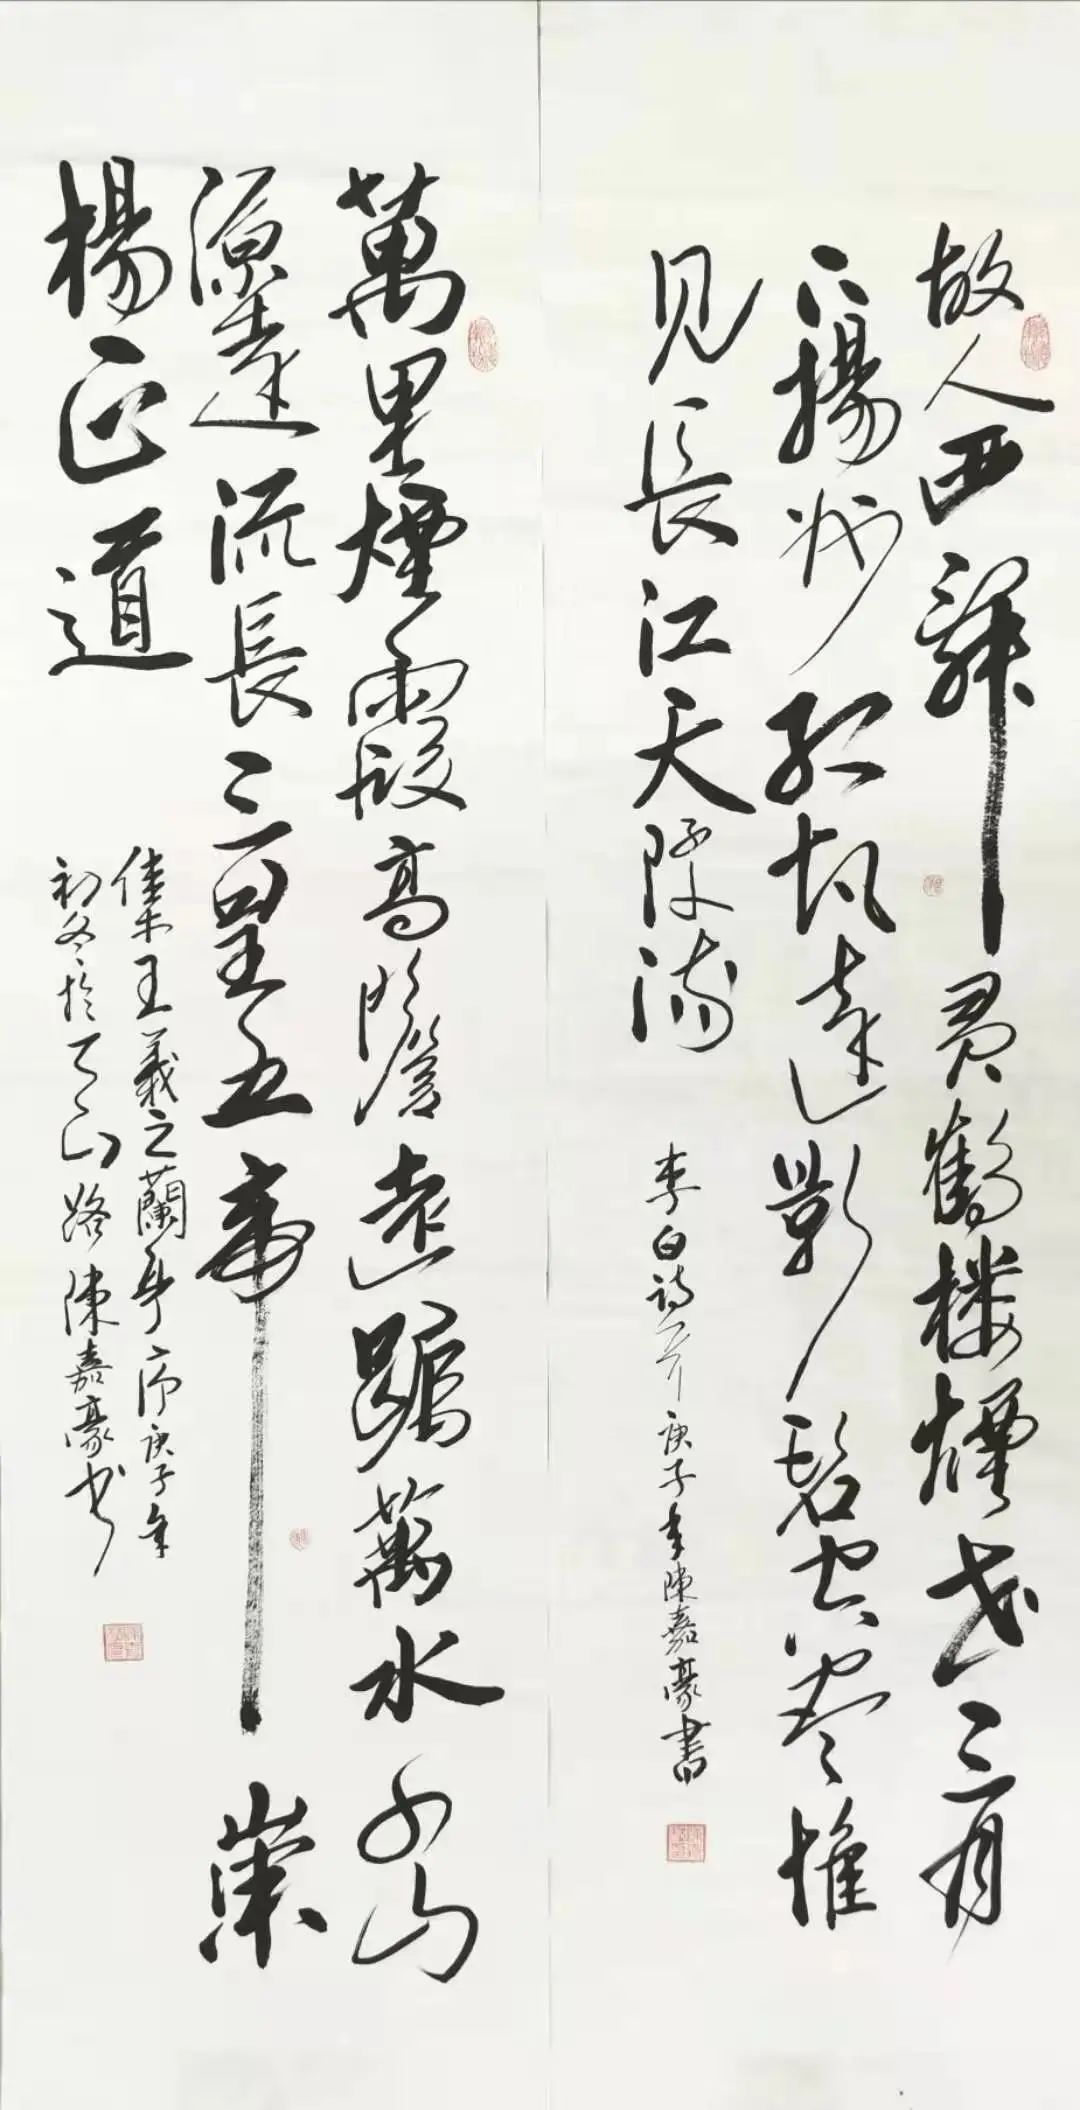 故人西辭黃鶴樓煙花三月
下揚州孤帆遠影碧空盡惟
見長江天際流
李白詩一首庚子年陳嘉豪書
萬里煙霞高瞻遠矚萬水千山
源遠流長三皇五帝崇
楊正道
集王羲之蘭亭序庚子年
初冬於天山路陳嘉豪书